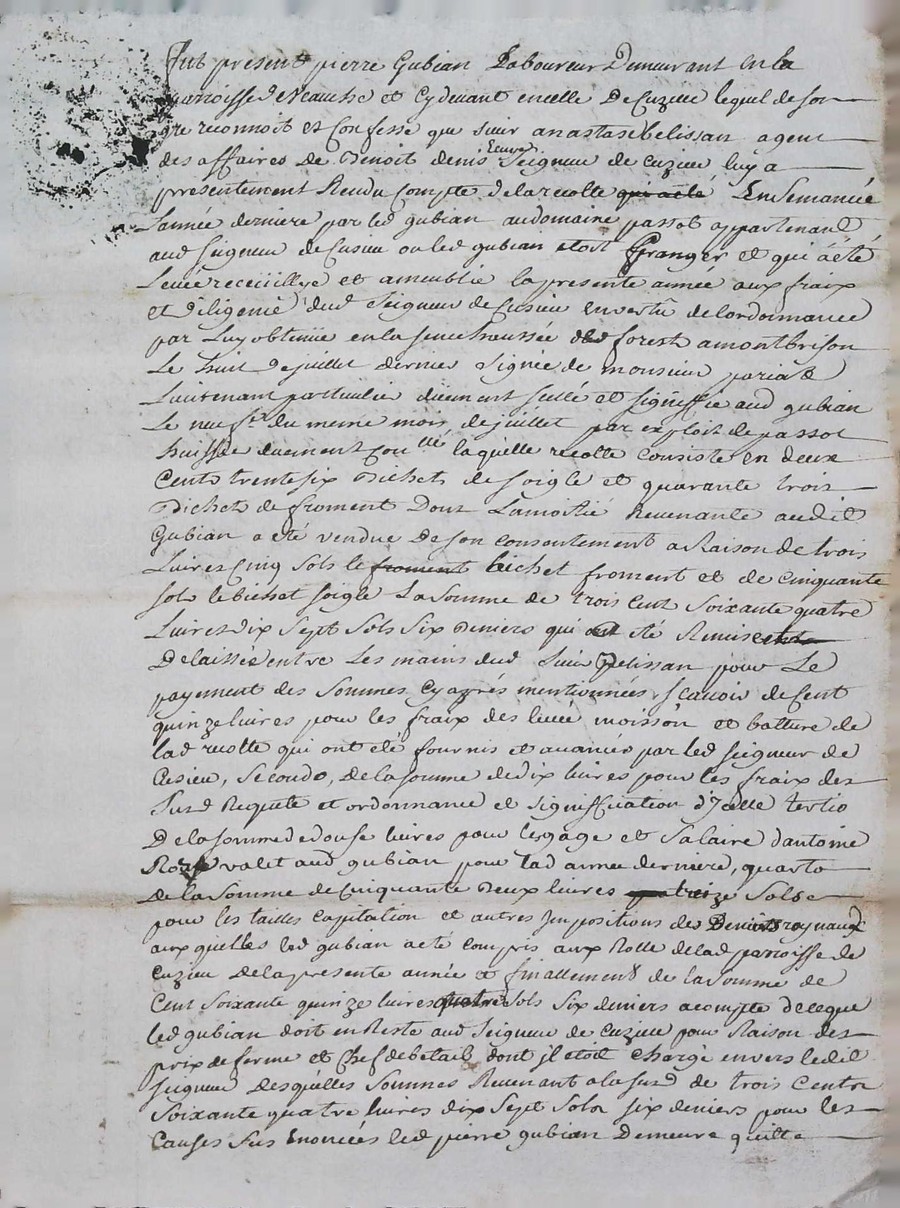 Fut present pierre Gubian Laboureur Demeurant en la
parroisse de Veauche et cydevant en celle De Cuzieu lequel de son
gre reconnoit et Confesse que sieur anastase belissan agent
des affaires de Benoit denis Ecuyer Seigneur de cuzieu luy a
presentement Rendu Compte de la recolte qui a eté Ensemancée
Lannée derniere par led gubian au domaine passot appartenant
aud seigneur de Cusieu ou led gubian etoit granger et qui à été
Levée receuillye et ameublie la presente année aux fraix
et diligence dud Seigneur de Cusieu en vertu de lordonnance
par Luy obtenüe en la senechaussée de forest a montbrison
Le huit de juillet dernier Signée de monsieur
Lieutenant particulier düement scellé et signiffie aud gubian
Le neuf du meme mois de juillet par exploit de passot
huissier duement Con.lle laquelle recolte consiste en deux
Cents trente six Bichets de soigle et quarante trois
Bichets de froment Dont Lamoitié Revenante audit
Gubian a eté vendue De son consentement a Raison de trois
Livres Cinq Sols le froment bichet froment et de cinquante
sols le bichet soigle La Somme de trois Cent Soixante quatre
Livres dix Sept Sols Six Deniers qui ont eté Remis
Delaissé entre Les mains dud Sieur Belissan pour Le
payement des Sommes Cy aprés mentionnées Scavoir de Cent
quinze livres pour les fraix des levée moisson et batture de
lad recolte qui ont eté fournis et avancés par led seigneur de
Cusieu, Secondo, de la somme de dix livres pour les fraix des
Susd Requete et ordonnance et Signiffication d'Icelle tertio
De la somme de douse livres pour lesgage et Salaire dantoine
valet aud gubian pour lad année derniere, quarto
de la Somme de Cinquante Deux livres treize Sols
pour les tailles Capitation et autres Impositions des Deniers roynaux
aux quelles led gubian a eté compris aux Rolle de lad paroisse de
Cuzieu de la presente année et finallement de la Somme de
Cent Soixante quinze livres quatre sols Six deniers acompte de ceque
led gubian doit en Reste aud Seigneur de Cuzieu pour Raison des
prix de ferme et Chef de betail dont il etoit Chargé envers ledit
seigneur Desquelles Sommes Revenant a la susd de trois Cents
Soixante quatre livres dix Sept Sols six deniers pour les
Causes Sus Enoncées led pierre gubian Demeure quitte